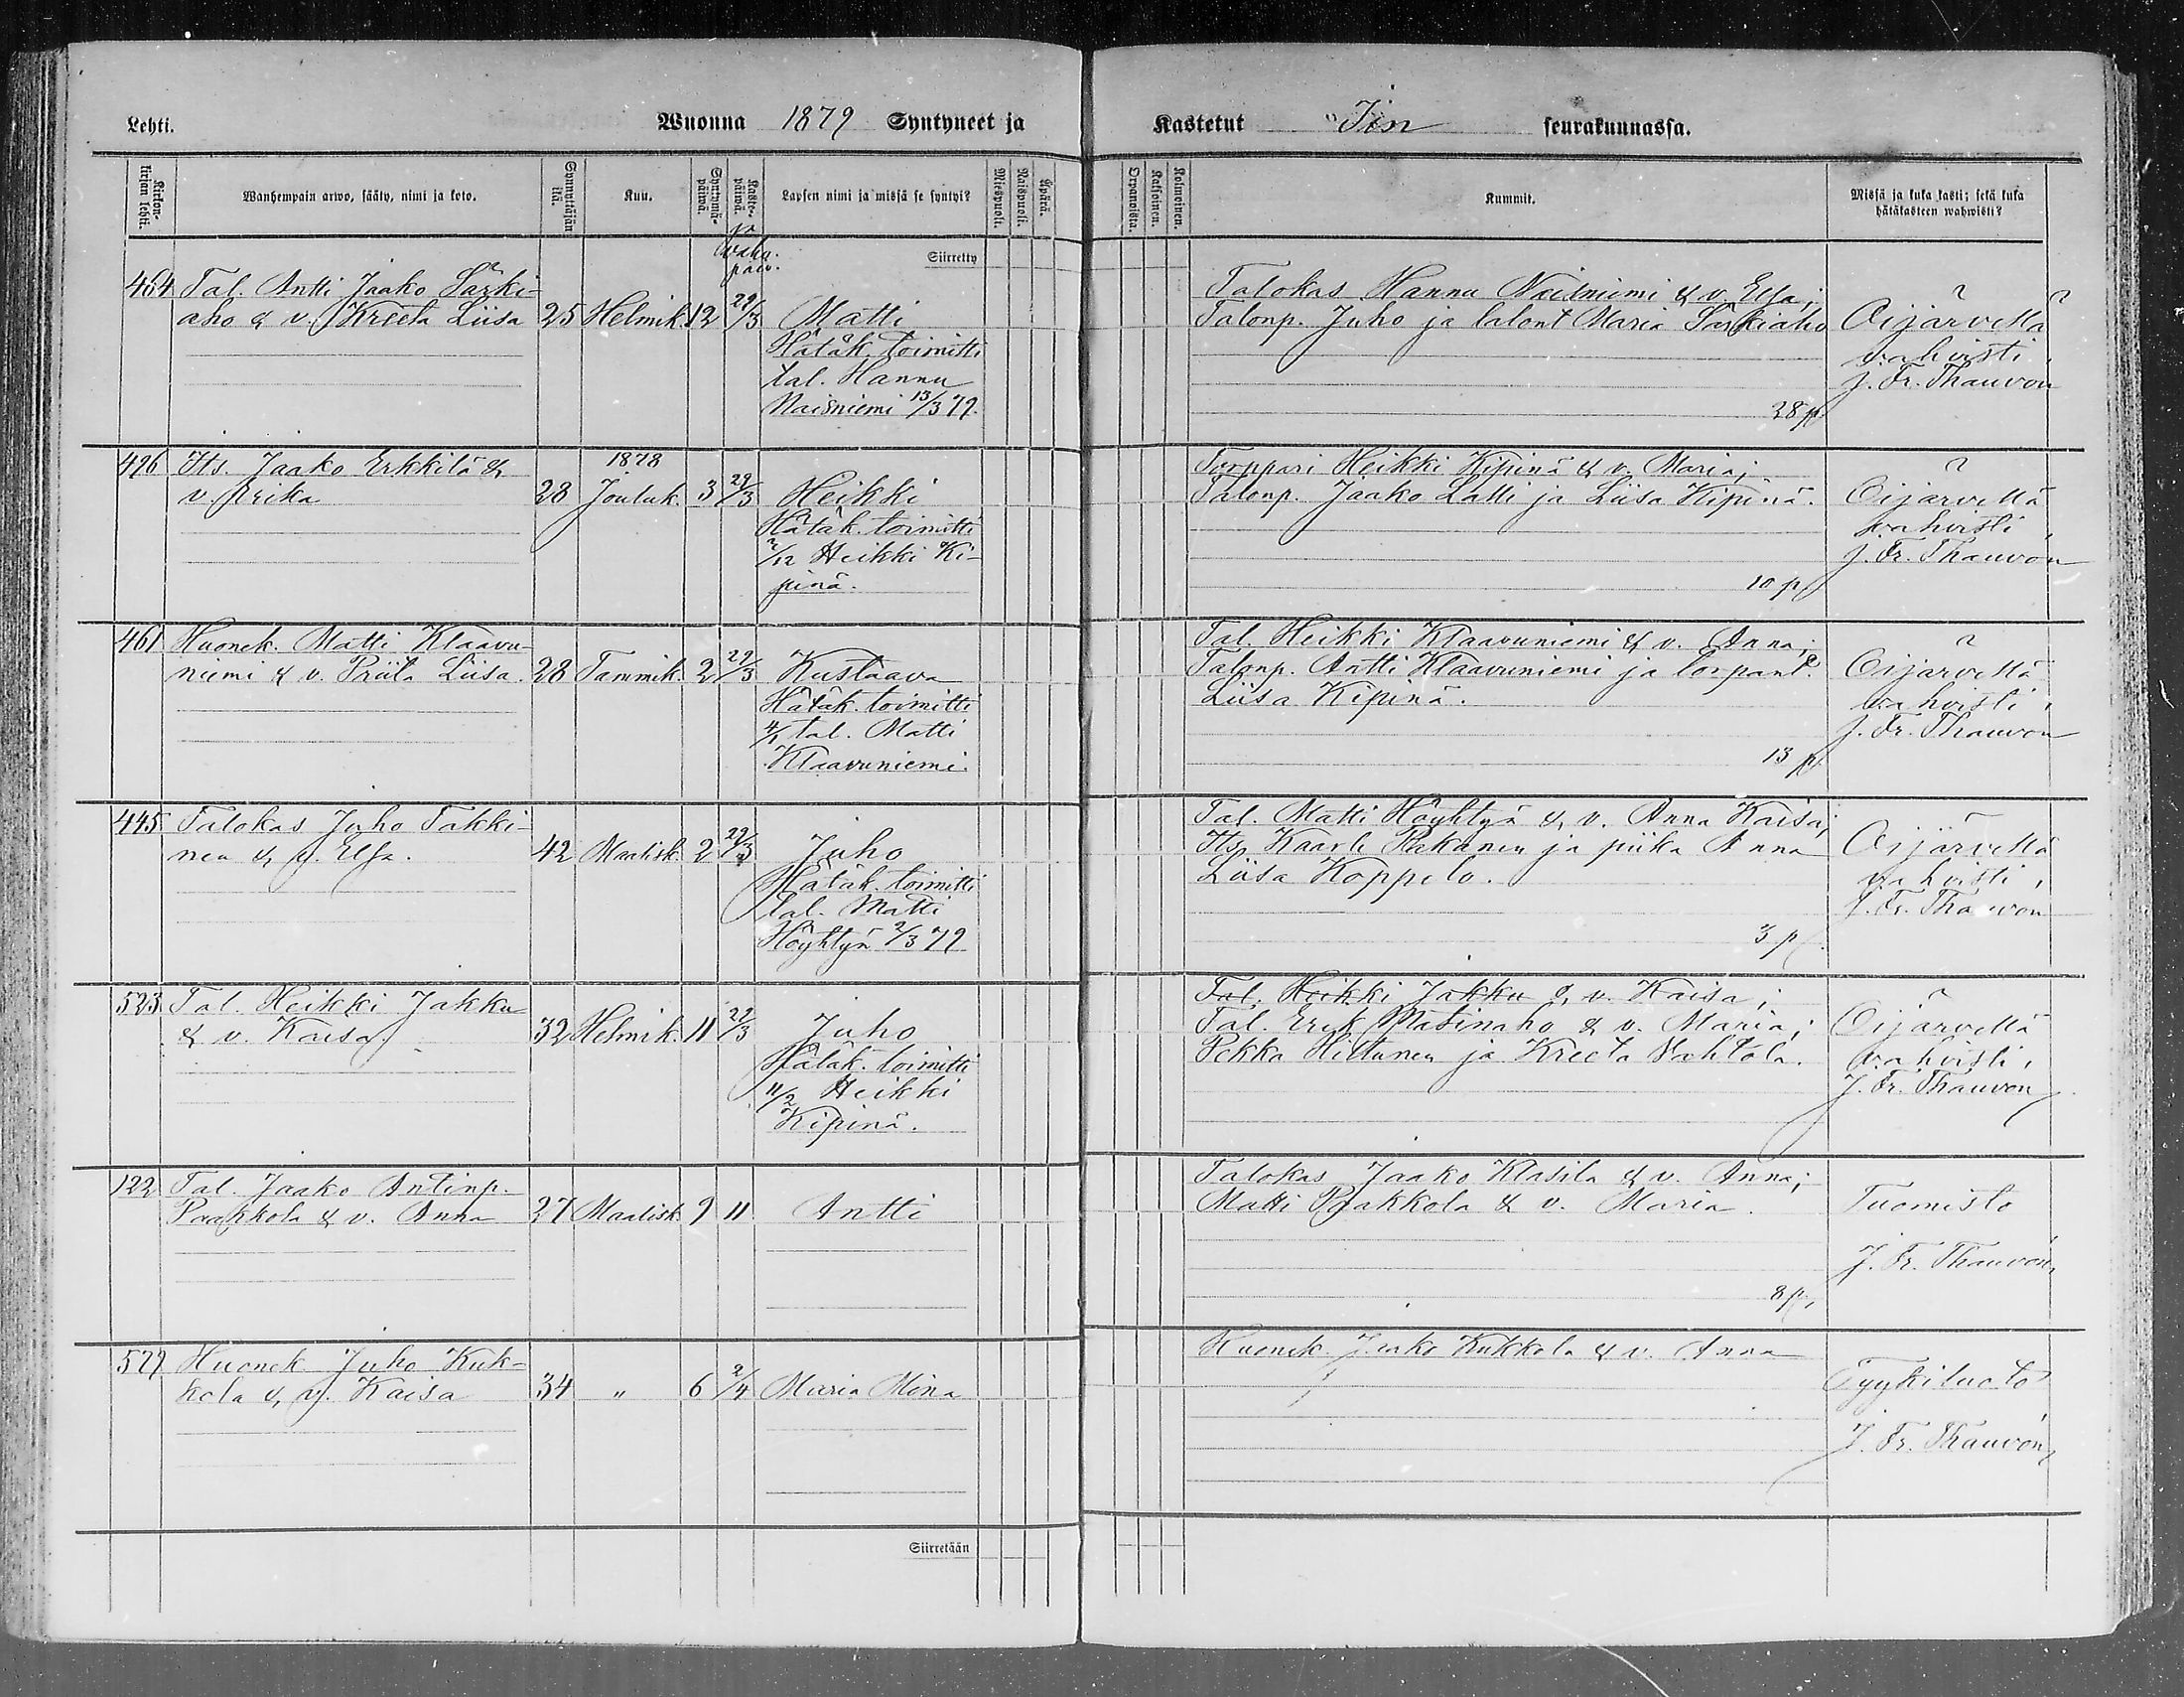 Lehti.
Wuonna 1879 Syntyneet ja
Kastetut Iin seurakunnassa.
Kirkonkirjan lehti.
Wanhempain arwo, sääty, nimi ja koto.
Synnyttäjän ikä.
Kuu.
Syntymäpäiwä.
Kastepäiwä.
ja wahv. päiv.
Lapsen nimi ja missä se syntyi?
Miespuoli.
Naispuoli.
Äpärä.
Orpanoista.
Kaksoinen.
Kolmoinen.
Kummit.
Missä ja kuka kasti; sekä kuka
hätäkasteen wahwisti?
Siirretty
464 Tal. Antti Jaako Särki-
aho & v. Kreeta Liisa 25 Helmik. 12 29/3 Matti
Hätäk. toimitti
tal. Hannu
Naisniemi 13/3 79.
Talokas Hannu Naisniemi & v. Elsa;
Talonp. Juho ja talont Maria Särkiaho
28 p
Oijärvellä
vahvisti
J. Fr. Thauvon
496 Its. Jaako Erkkilä &
v. Reika 28 1878 Jouluk. 3 29/3 Heikki
Hätäk. toimitti
/12 Heikki Ki-
pinä.
Torppari Heikki Kipinä & v. Maria;
Talonp. Jaako Latti ja Liisa Kipinä.
10 p
Oijärvellä
vahvisti
J. Fr. Thauvon
461 Huonek. Matti Klaavu-
niemi & v. Priita Liisa. 28 Tammik. 2 29/3 Kustaava
Hätäk. toimitti
tal. Matti
Klaavuniemi.
Tal. Heikki Klaavuniemi & v. Anna;
Talonp. Antti Klaavuniemi ja torpant.
Liisa Kipinä.
13 p
Oijärvellä
vahvisti
J. Fr. Thauvon
445 Talokas Juho Takki-
nen & v. Elsa. 42 Maalisk. 2 29/3 Juho
Hätäk. toimitti
tal. Matti
Höyhtyä 2/3 79
Tal. Matti Höyhtyä & v. Anna Kaisa;
Its. Kaarle Pakanen ja piika Anna
Liisa Koppelo.
3 p
Oijärvellä
vahvisti,
J. Fr. Thauvon
523 Tal. Heikki Jakku
& v. Kaisa. 32 Helmik. 11 29/3 Juho
Hätäk. toimitti
11/2 Heikki
Kipinä.
Tal. Heikki Jakku & v. Kaisa;
Tal. Erik Matinaho & v. Maria;
Pekka Hiltunen ja Kreeta Vahtola.
Oijärvellä
vahvisti,
J. Fr. Thauvon
122 Tal. Jaako Antinp.
Paakkola & v. Anna 27 Maalisk. 9 11 Antti
Talokas Jaako Klasila & v. Anna;
Matti Paakkola & v. Maria.
8 p,
Tuomisto
J. Fr. Thauvon,
579 Huonek Juho Kuk-
kola & v. Kaisa 34 " 6 2/4 Maria Mina
Huonek. Jaako Kukkola & v. Anna
Tyykiluoto
J. Fr. Thauvon,
Siirretään